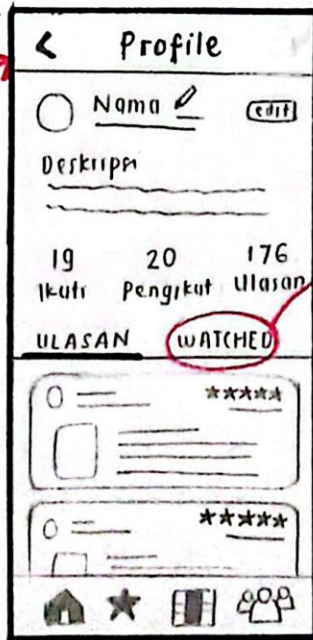 < Profile
Nama edit
Deskripsi
19 20 176
Ikuti Pengikut Ulasan
ULASAN WATCHED
★★★★★
★★★★★